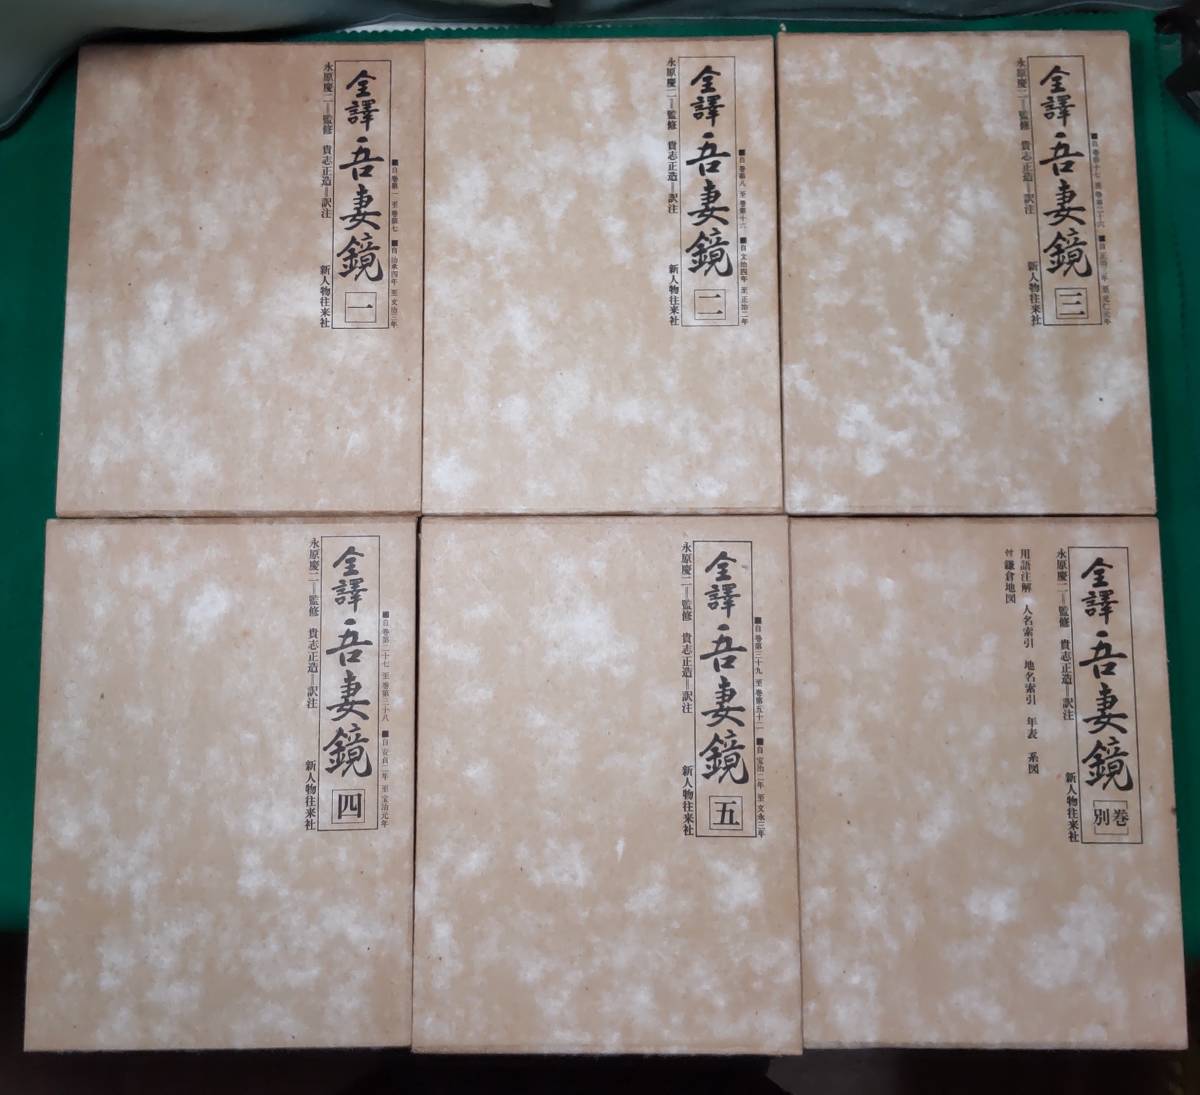 ■自巻第一 至巻第七 ■自治承四年 至文治三年
全譯 吾妻鏡 一
永原慶二=監修 貴志正造=訳注 新人物往来社
■自巻第八 至巻第十六 ■自文治四年 至正治二年
全譯 吾妻鏡 二
永原慶二=監修 貴志正造=訳注 新人物往来社
■自巻第十七 至巻第二十六 ■自正治三年 至元仁元年
全譯 吾妻鏡 三
永原慶二=監修 貴志正造=訳注 新人物往来社
■自巻第二十七 至巻第三十八 ■自安貞二年 至宝治元年
全譯 吾妻鏡 四
永原慶二=監修 貴志正造=訳注 新人物往来社
■自巻第三十九 至巻第五十二 ■自宝治二年 至文永三年
全譯 吾妻鏡 五
永原慶二=監修 貴志正造=訳注 新人物往来社
全譯 吾妻鏡 別巻
永原慶二=監修 貴志正造=訳注 新人物往来社
用語注解 人名索引 地名索引 年表 系図
付 鎌倉地図